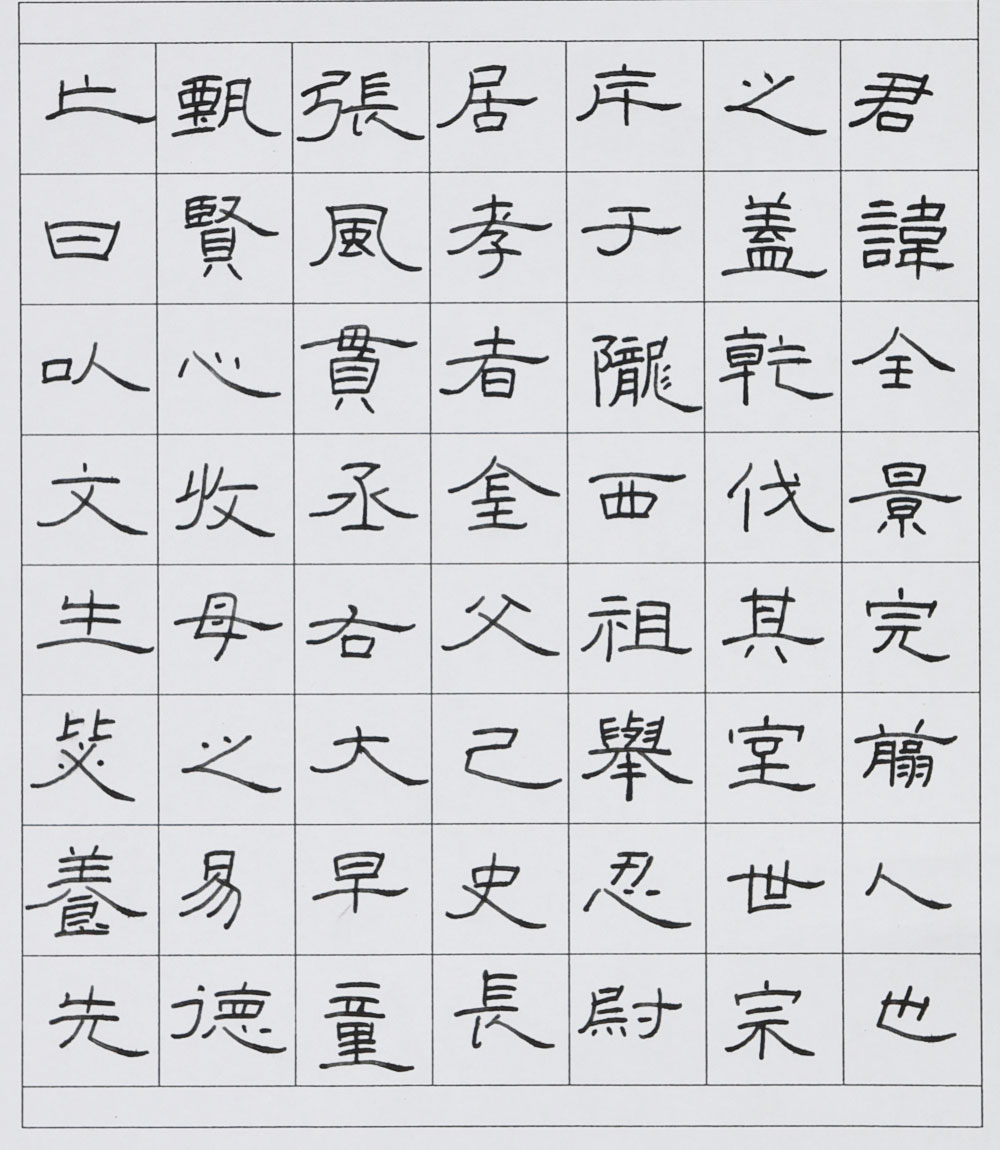 君諱全景完翦人也
之蓋乾伐其室世宗
于隴西祖舉忍尉
居孝者父己史長
張風貫丞右大早童
甄賢心收母之易德
曰以文生養先